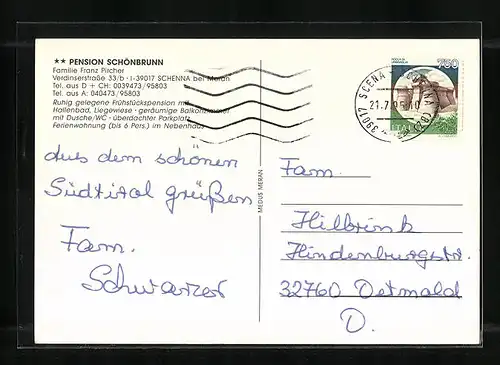 ★★ PENSION SCHÖNBRUNN
Familie Franz Pircher
Verdinserstraße 33/b · I-39017 SCHENNA bei Meran
Tel. aus D + CH: 0039473/95803
Tel. aus A: 040473/95803
Ruhig gelegene Frühstückspension mit
Hallenbad, Liegewiese · geräumige Balkonzimmer
mit Dusche/WC · überdachter Parkplatz
Ferienwohnung (bis 6 Pers.) im Nebenhaus
aus dem schönen
Südtirol grüßen
Fam.
Schwarzer
MEDUS MERAN
750
39017 SCENA
(BZ)
21.7.95
ITALIA
Fam.
Hilbrink
Hindenburgstr.
32760 Detmald
D.